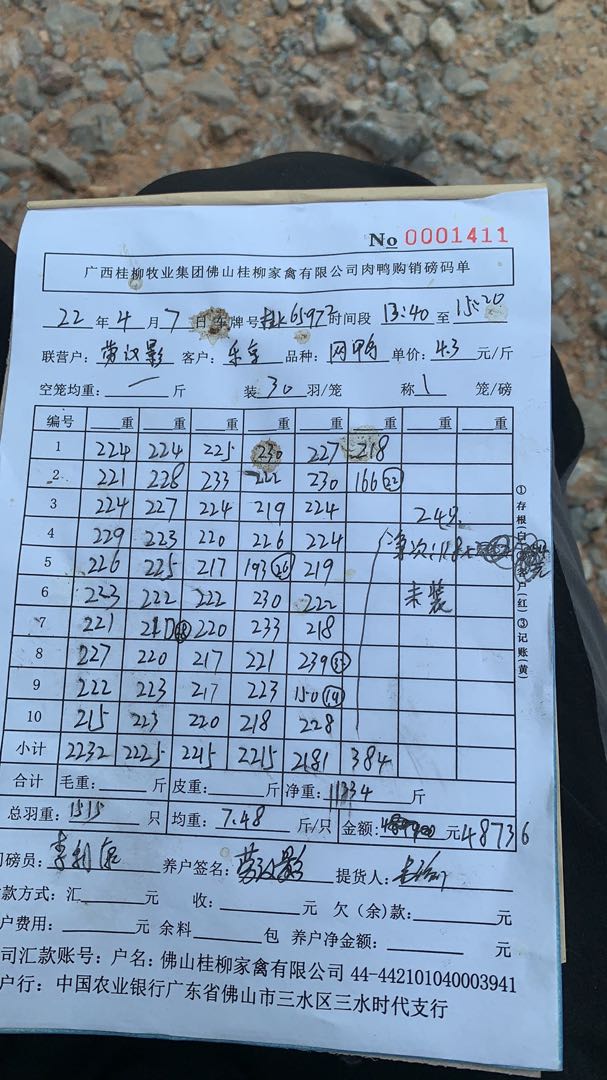 No 0001411
广西桂柳牧业集团佛山桂柳家禽有限公司肉鸭购销磅码单
22 年 4 月 7 日 车牌号 时间段 13:40 至 15:20
联营户: 客户: 品种: 单价: 4.3 元/斤
空笼均重: 一 斤 装 30 羽/笼 称 1 笼/磅
编号 重 重 重 重 重 重 重 重
1 224 224 225 230 227 218
2 221 228 233 222 230 166 (22)
3 224 227 224 219 224 249
4 229 223 220 226 224
5 226 225 217 193 (26) 219
6 223 222 222 230 222 未装
7 221 220 233 218
8 227 220 217 221 239
9 222 223 217 223 150 (19)
10 215 223 220 218 228
小计 2232 2225 2215 2215 2181 384
合计 毛重: 斤 皮重: 斤 净重: 11334 斤
总羽重: 1515 只 均重: 7.48 斤/只 金额: 元 48736
磅员: 养户签名: 提货人:
款方式: 汇 元 收: 元 欠(余)款: 元
户费用: 元 余料 包 养户净金额: 元
司汇款账号: 户名: 佛山桂柳家禽有限公司 44-442101040003941
户行: 中国农业银行广东省佛山市三水区三水时代支行
①存根(白
户(红)③记账(黄)